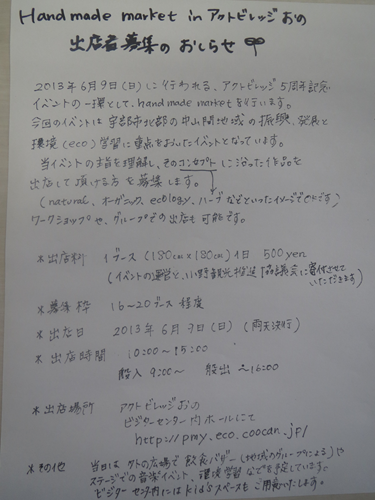 Handmade market in アクトビレッジおの
出店者募集のおしらせ
2013年6月9日(日)に行われる、アクトビレッジ5周年記念
イベントの一環として、handmade marketを行います。
今回のイベントは宇部市北部の中山間地域の振興、発展と
環境(eco)学習に重点をおいたイベントとなっています。
当イベントの主旨を理解し、そのコンセプトに沿った作品を
出店して頂ける方を募集します。
(natural、オーガニック、ecology、ハーブなどといったイメージでOKです)
ワークショップや、グループでの出店も可能です。
*出店料 1ブース(180cm×180cm)1日 500yen
(イベントの運営と、小野観光推進協議会に寄付させて
いただきます)
*募集枠 16〜20ブース程度
*出店日 2013年6月9日(日)(雨天決行)
*出店時間 10:00〜15:00
搬入 9:00〜 搬出 〜16:00
*出店場所 アクトビレッジおの
ビジターセンター内ホールにて
http://pmy.eco.coocan.jp/
*その他 当日は、外の広場で飲食バザー(地域のグループによる)や
ステージでの音楽イベント、環境学習などを予定しています。
ビジターセンター内にはkid'sスペースもご用意いたします。